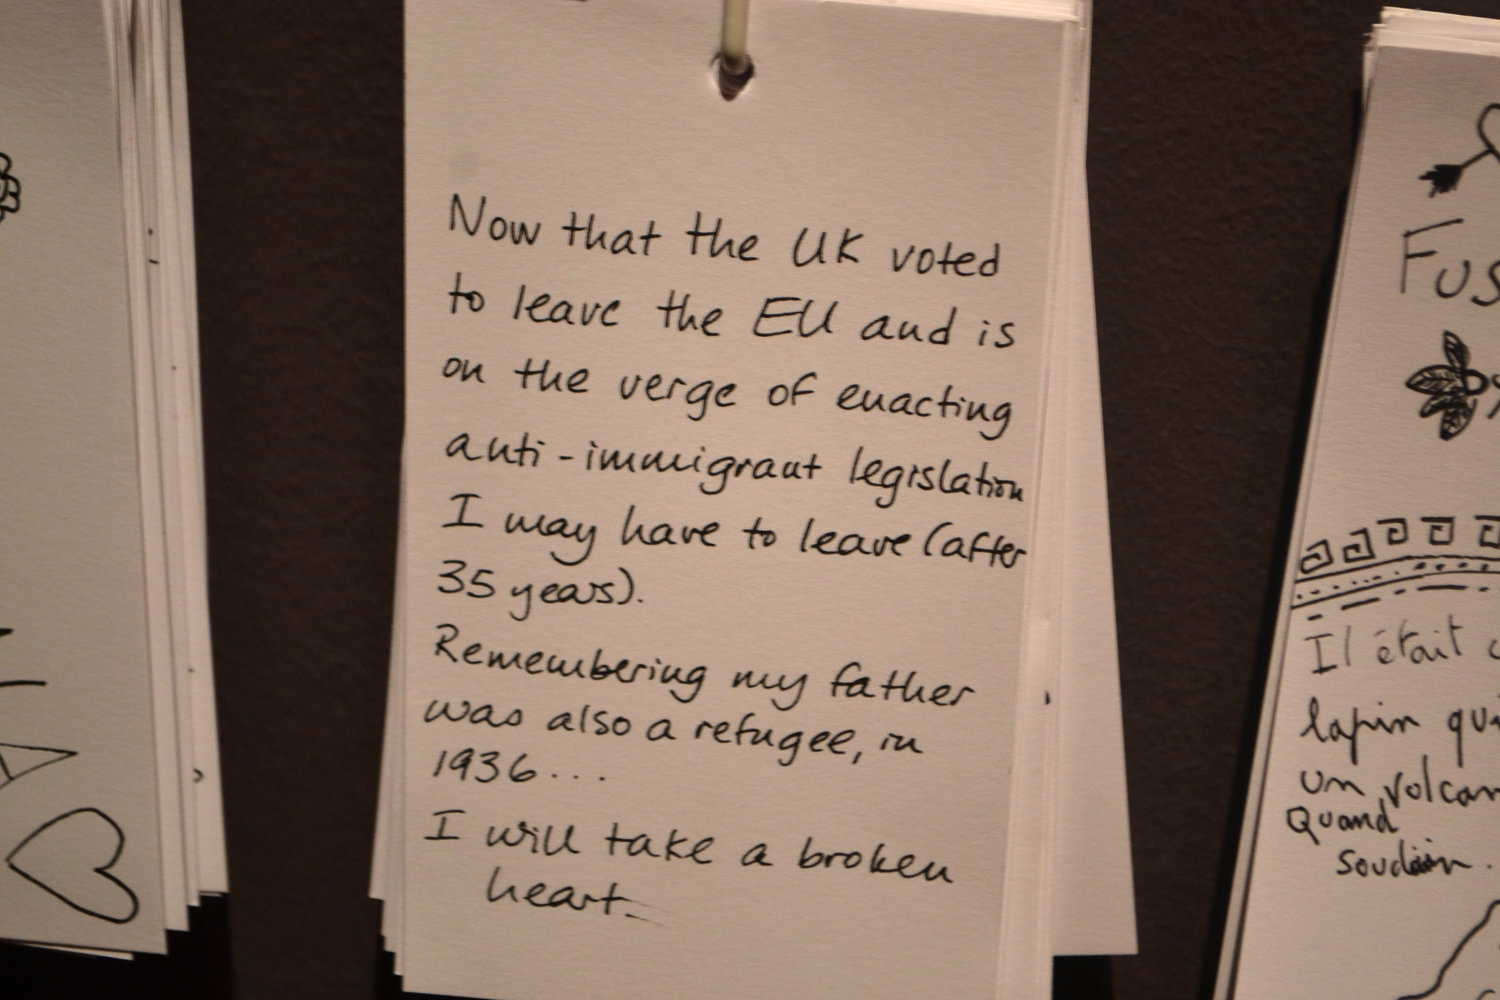 Now that the UK voted
to leave the EU and is
on the verge of enacting
anti-immigrant legislation
I may have to leave (after
35 years).
Remembering my father
was also a refugee, in
1936...
I will take a broken
heart.
Il était
lapin qui
un volcan
Quand
soudain.